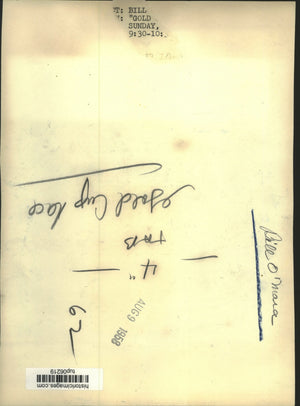 T: BILL
: "GOLD
SUNDAY,
9:30-10:
Bill O'Mara
Gold Cup Race
TAB
4"
AUG 9 1958
62
historicimages.com
tup06219